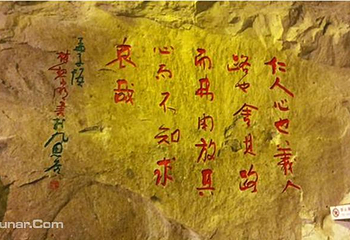 仁人心也義人
路也舍其路
而弗由放其
心而不知求
哀哉
unar.Com